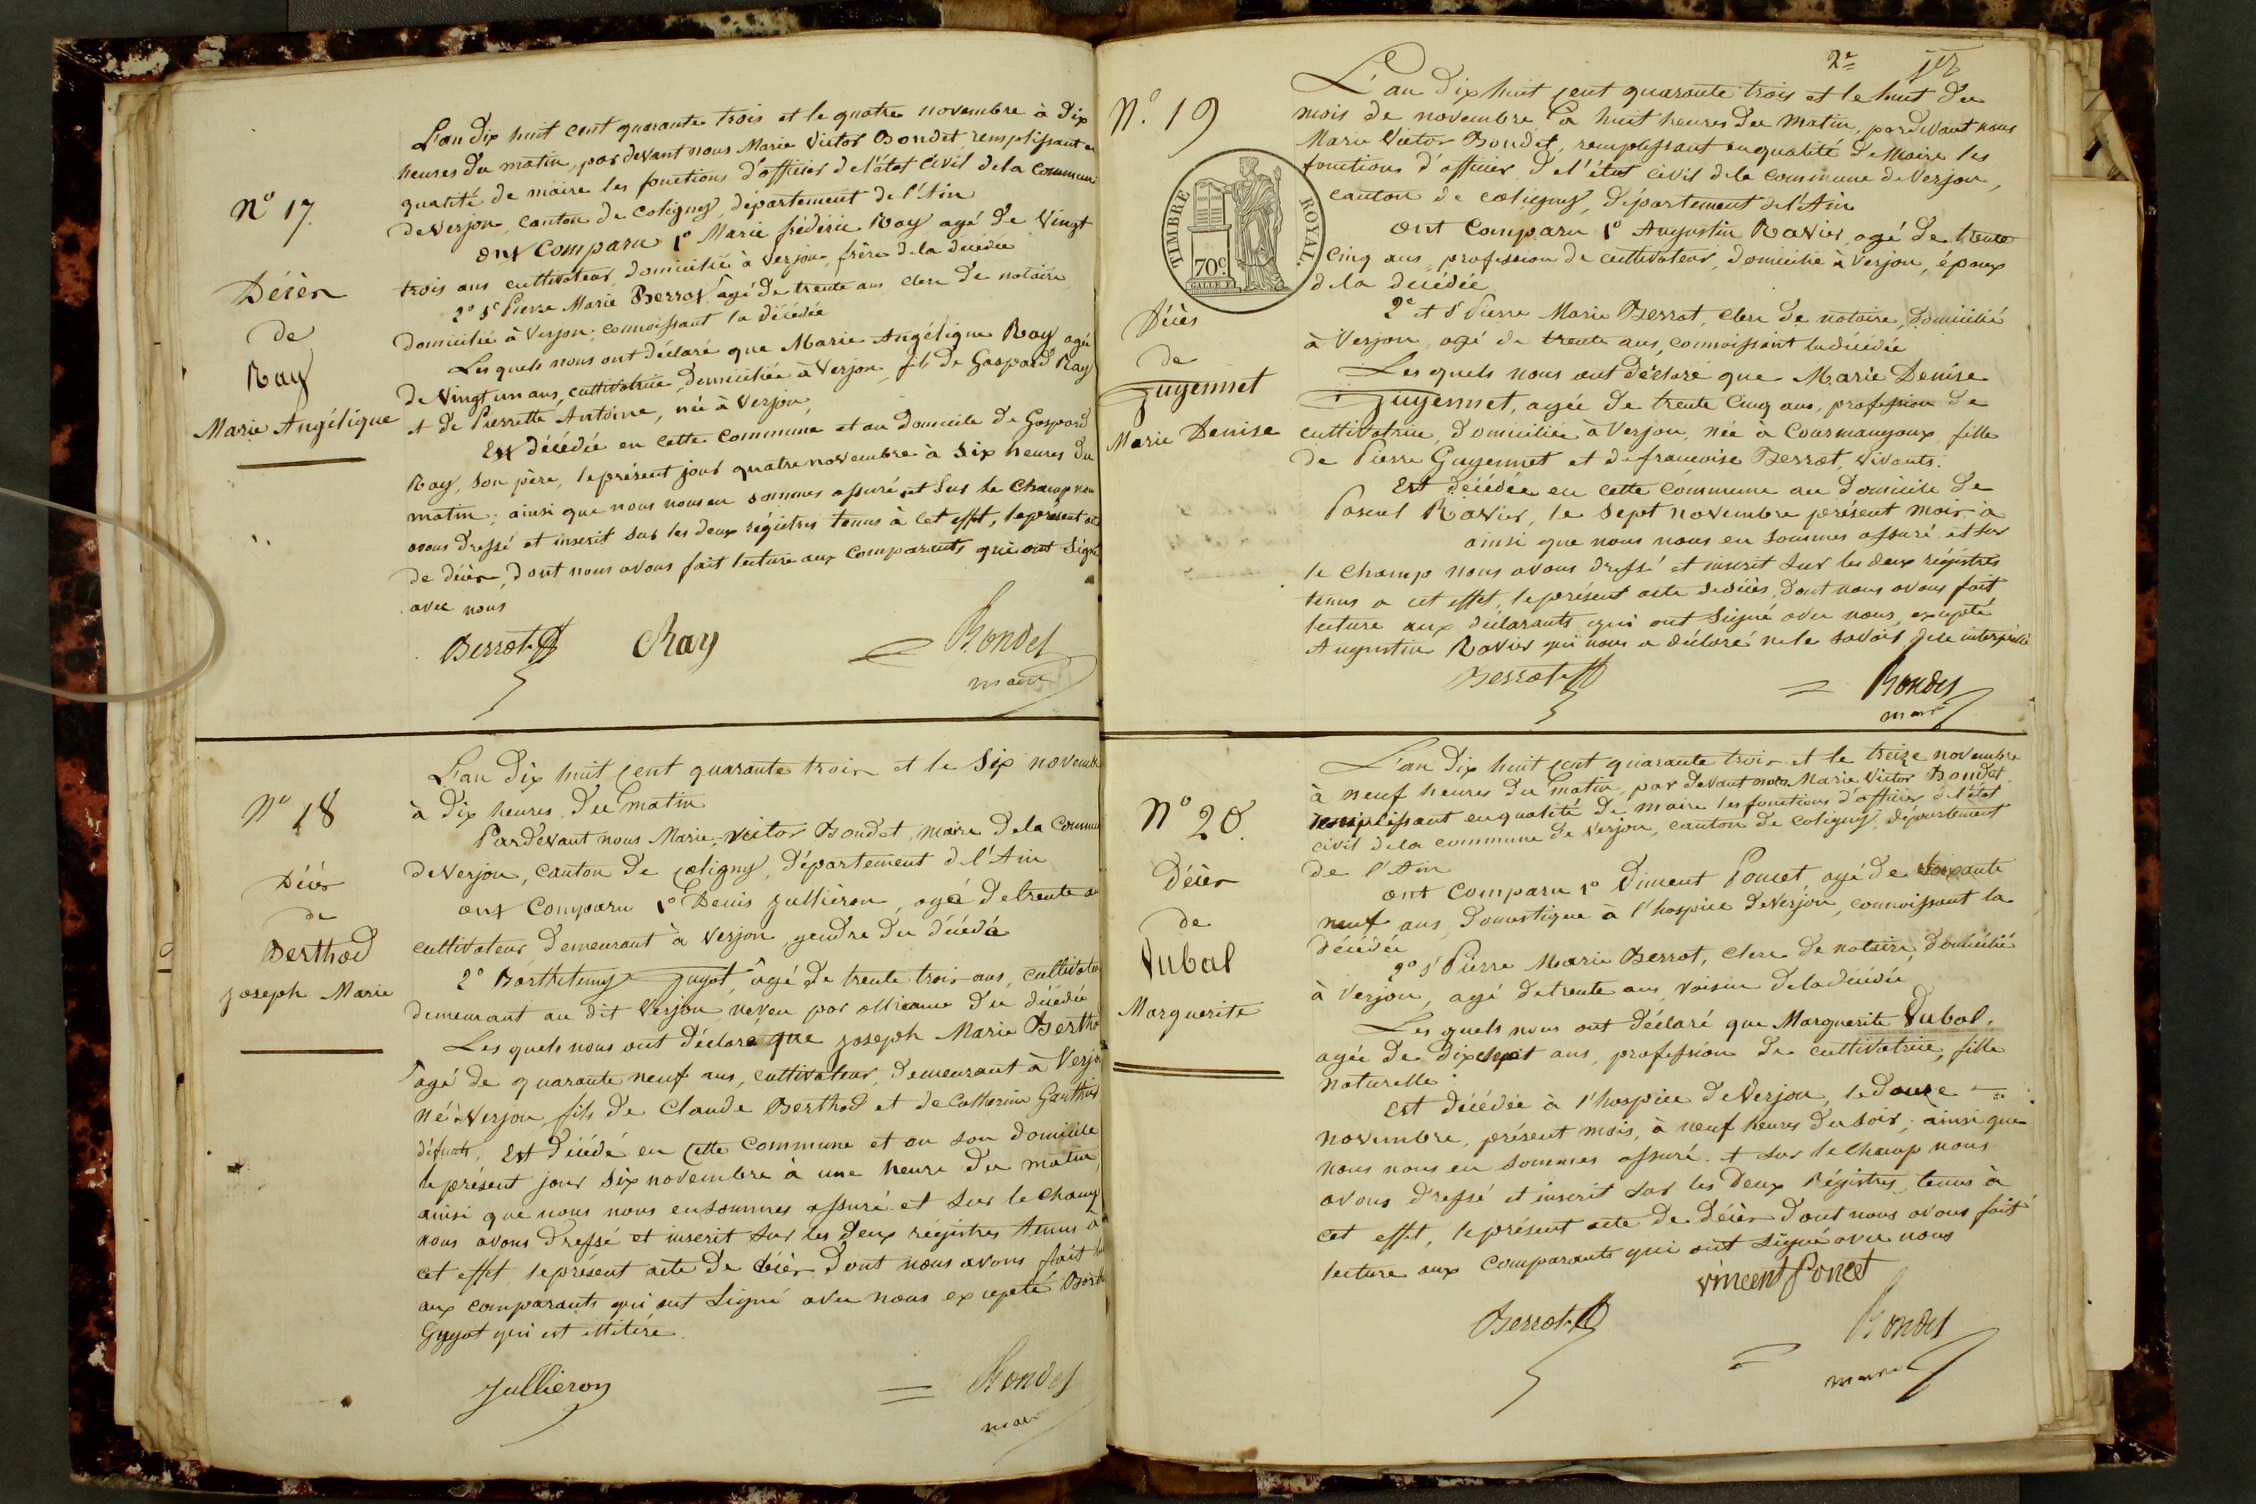 N° 17.
Décès
de
Ray
Marie Angélique
L'an dix huit cent quarante trois et le quatre novembre à dix
heures du matin, par devant nous Marie Victor Bondet, remplissant en
qualité de maire les fonctions d'officier de l'état civil de la commune
de Verjon, canton de Coligny, département de l'Ain
ont comparu 1° Marie frédéric Ray agé de vingt
trois ans cultivateur, domicilié à Verjon, frère de la décédée
2° Sr Pierre Marie Berrot, agé de trente ans clerc de notaire
domicilié à Verjon; connoissant la décédée
Les quels nous ont déclaré que Marie Angélique Ray agée
de vingt un ans, cultivatrice, domiciliée à Verjon, fille de Gaspard Ray
et de Pierrette Antoine, née à Verjon,
Est décédée en cette commune et au domicile de Gaspard
Ray, son père, le présent jour quatre novembre à six heures du
matin; ainsi que nous nous en sommes assuré et sur le champ nous
avons dressé et inscrit sur les deux régistres tenus à cet effet, le présent acte
de décès, dont nous avons fait lecture aux comparants qui ont signé
avec nous
Berrot Ray Bondet
maire
N° 18
Décès
de
Berthod
Joseph Marie
L'an dix huit cent quarante trois et le six novembre
à dix heures du matin
Pardevant nous Marie Victor Bondet, maire de la commune
de Verjon, canton de coligny, département de l'Ain
ont comparu 1° Denis Jullièron, agé de trente ans
cultivateur demeurant à Verjon, gendre du décédé
2° Barthelemy Guyot, âgé de trente trois ans, cultivateur
demeurant au dit Verjon neveu par alliance du décédé
Les quels nous ont déclaré que Joseph Marie Berthod
agé de quarante neuf ans, cultivateur, demeurant à Verjon
né à Verjon, fils de Claude Berthod et de Catherine Gauthier
défunts, Est décédé en cette commune et en son domicile
le présent jour six novembre à une heure du matin,
ainsi que nous nous en sommes assuré et sur le champ
nous avons dressé et inscrit sur les deux régistres tenus à
cet effet, le présent acte de décès dont nous avons fait
aux comparants qui ont signé avec nous excepté
Guyot qui est illitéré.
Jullieron Bondet
maire
2e
N°. 19
TIMBRE ROYAL.
70c
Décès
de
Guyennet
Marie Denise
L'an dix huit cent quarante trois et le huit du
mois de novembre à huit heures du matin, pardevant nous
Marie Victor Bondet, remplissant en qualité de Maire les
fonctions d'officier de l'état civil de la commune de Verjon,
canton de coligny, département de l'Ain
ont comparu 1° Augustin Ravier, agé de trente
cinq ans, profession de cultivateur, domicilié à Verjon, époux
de la décédée
2° et Sr Pierre Marie Berrot, clerc de notaire, domicilié
à Verjon, agé de trente ans, connoissant la décédée
Les quels nous ont déclaré que Marie Denise
Guyennet, agée de trente cinq ans, profession de
cultivatrice, domiciliée à Verjon, née à Courmangoux, fille
de Pierre Guyennet et de francoise Berrot, vivants.
Est décédée en cette commune au domicile de
Pascal Ravier, le sept novembre présent mois à
ainsi que nous nous en sommes assuré et sur
le champ nous avons dressé et inscrit sur les deux régistres
tenus a cet effet, le présent acte de décès, dont nous avons fait
lecture aux déclarants qui ont signé avec nous, excepté
Augustin Ravier qui nous a déclaré ne le savoir de ce interpellé
Berrot Bondet
maire
N° 20.
Décès
de
Dubal
Marguerite
L'an dix huit cent quarante trois et le treize novembre
à neuf heures du matin, par devant nous Marie Victor Bondet
remplissant en qualité de maire les fonctions d'officier de l'état
civil de la commune de Verjon, canton de coligny, département
de l'Ain
ont comparu 1° Vincent Poncet agé de soixante
neuf ans, domestique à l'hospice de Verjon, connoissant la
décédée
2° Sr Pierre Marie Berrot, clerc de notaire, domicilié
à Verjon, agé de trente ans voisin de la décédée
Les quels nous ont déclaré que Marguerite Dubal,
agée de dix sept ans, profession de cultivatrice, fille
naturelle
Est décédée à l'hospice de Verjon, le douze
novembre, présent mois, à neuf heures du soir; ainsi que
nous nous en sommes assuré et sur le champ nous
avons dressé et inscrit sur les deux Régistres tenus à
cet effet, le présent acte de décès dont nous avons fait
lecture aux comparants qui ont signé avec nous
Vincent Poncet
Berrot Bondet
maire